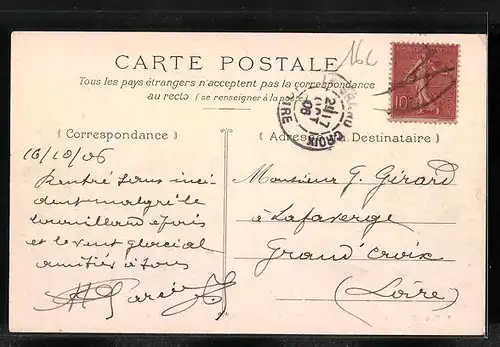 16c
CARTE POSTALE
Tous les pays étrangers n'acceptent pas la correspondance
au recto (se renseigner à la poste)
10
GRAND CROIX
LOIRE
( Correspondance )
( Adresse du Destinataire )
16/10/06
Rentré sans inci-
dent malgré le
brouillard épais
et le vent glacial
amitiés à tous
Monsieur G. Girard
à Lafaverge
Grand'Croix
(Loire)